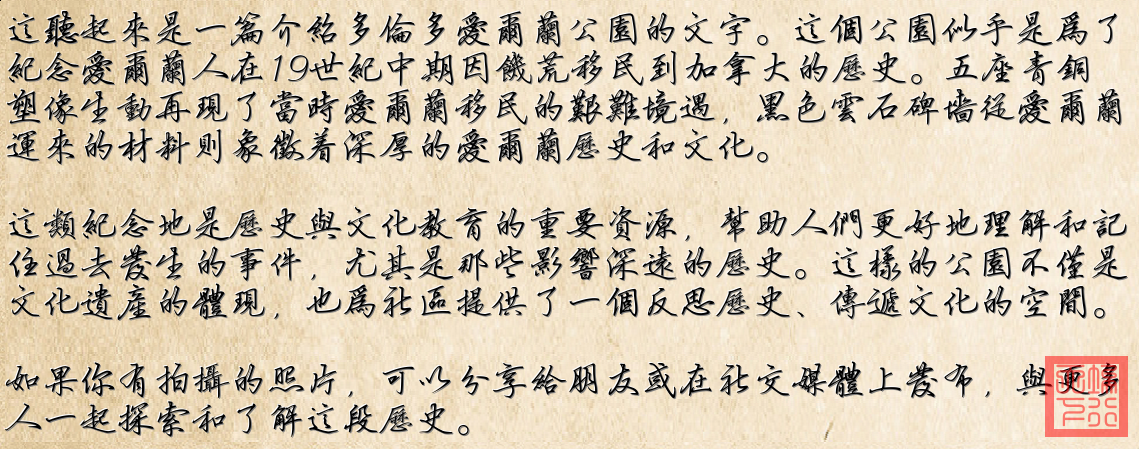 這聽起來是一篇介紹多倫多愛爾蘭公園的文字。這個公園似乎是爲了
紀念愛爾蘭人在19世紀中期因饑荒移民到加拿大的歷史。五座青銅
塑像生動再現了當時愛爾蘭移民的艱難境遇，黑色雲石碑墻從愛爾蘭
運來的材料則象徵着深厚的愛爾蘭歷史和文化。
這類紀念地是歷史與文化教育的重要資源，幫助人們更好地理解和記
住過去發生的事件，尤其是那些影響深遠的歷史。這樣的公園不僅是
文化遺產的體現，也爲社區提供了一個反思歷史、傳遞文化的空間。
如果你有拍攝的照片，可以分享給朋友或在社交媒體上發布，與更多
人一起探索和了解這段歷史。